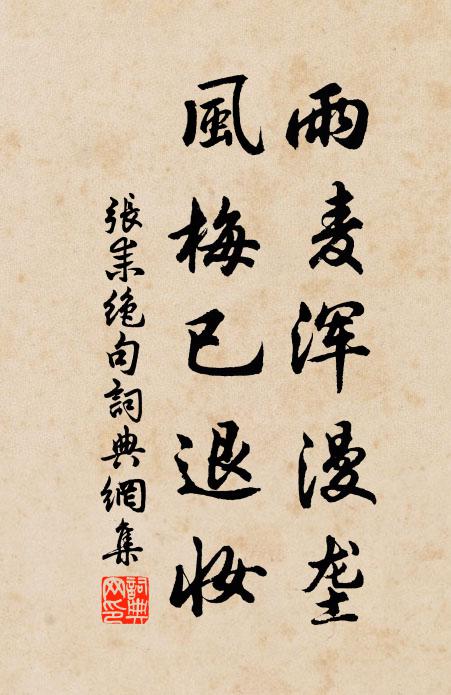 雨麦浑漫垄
風梅已退妝
張耒绝句詞典網集
詞典网印